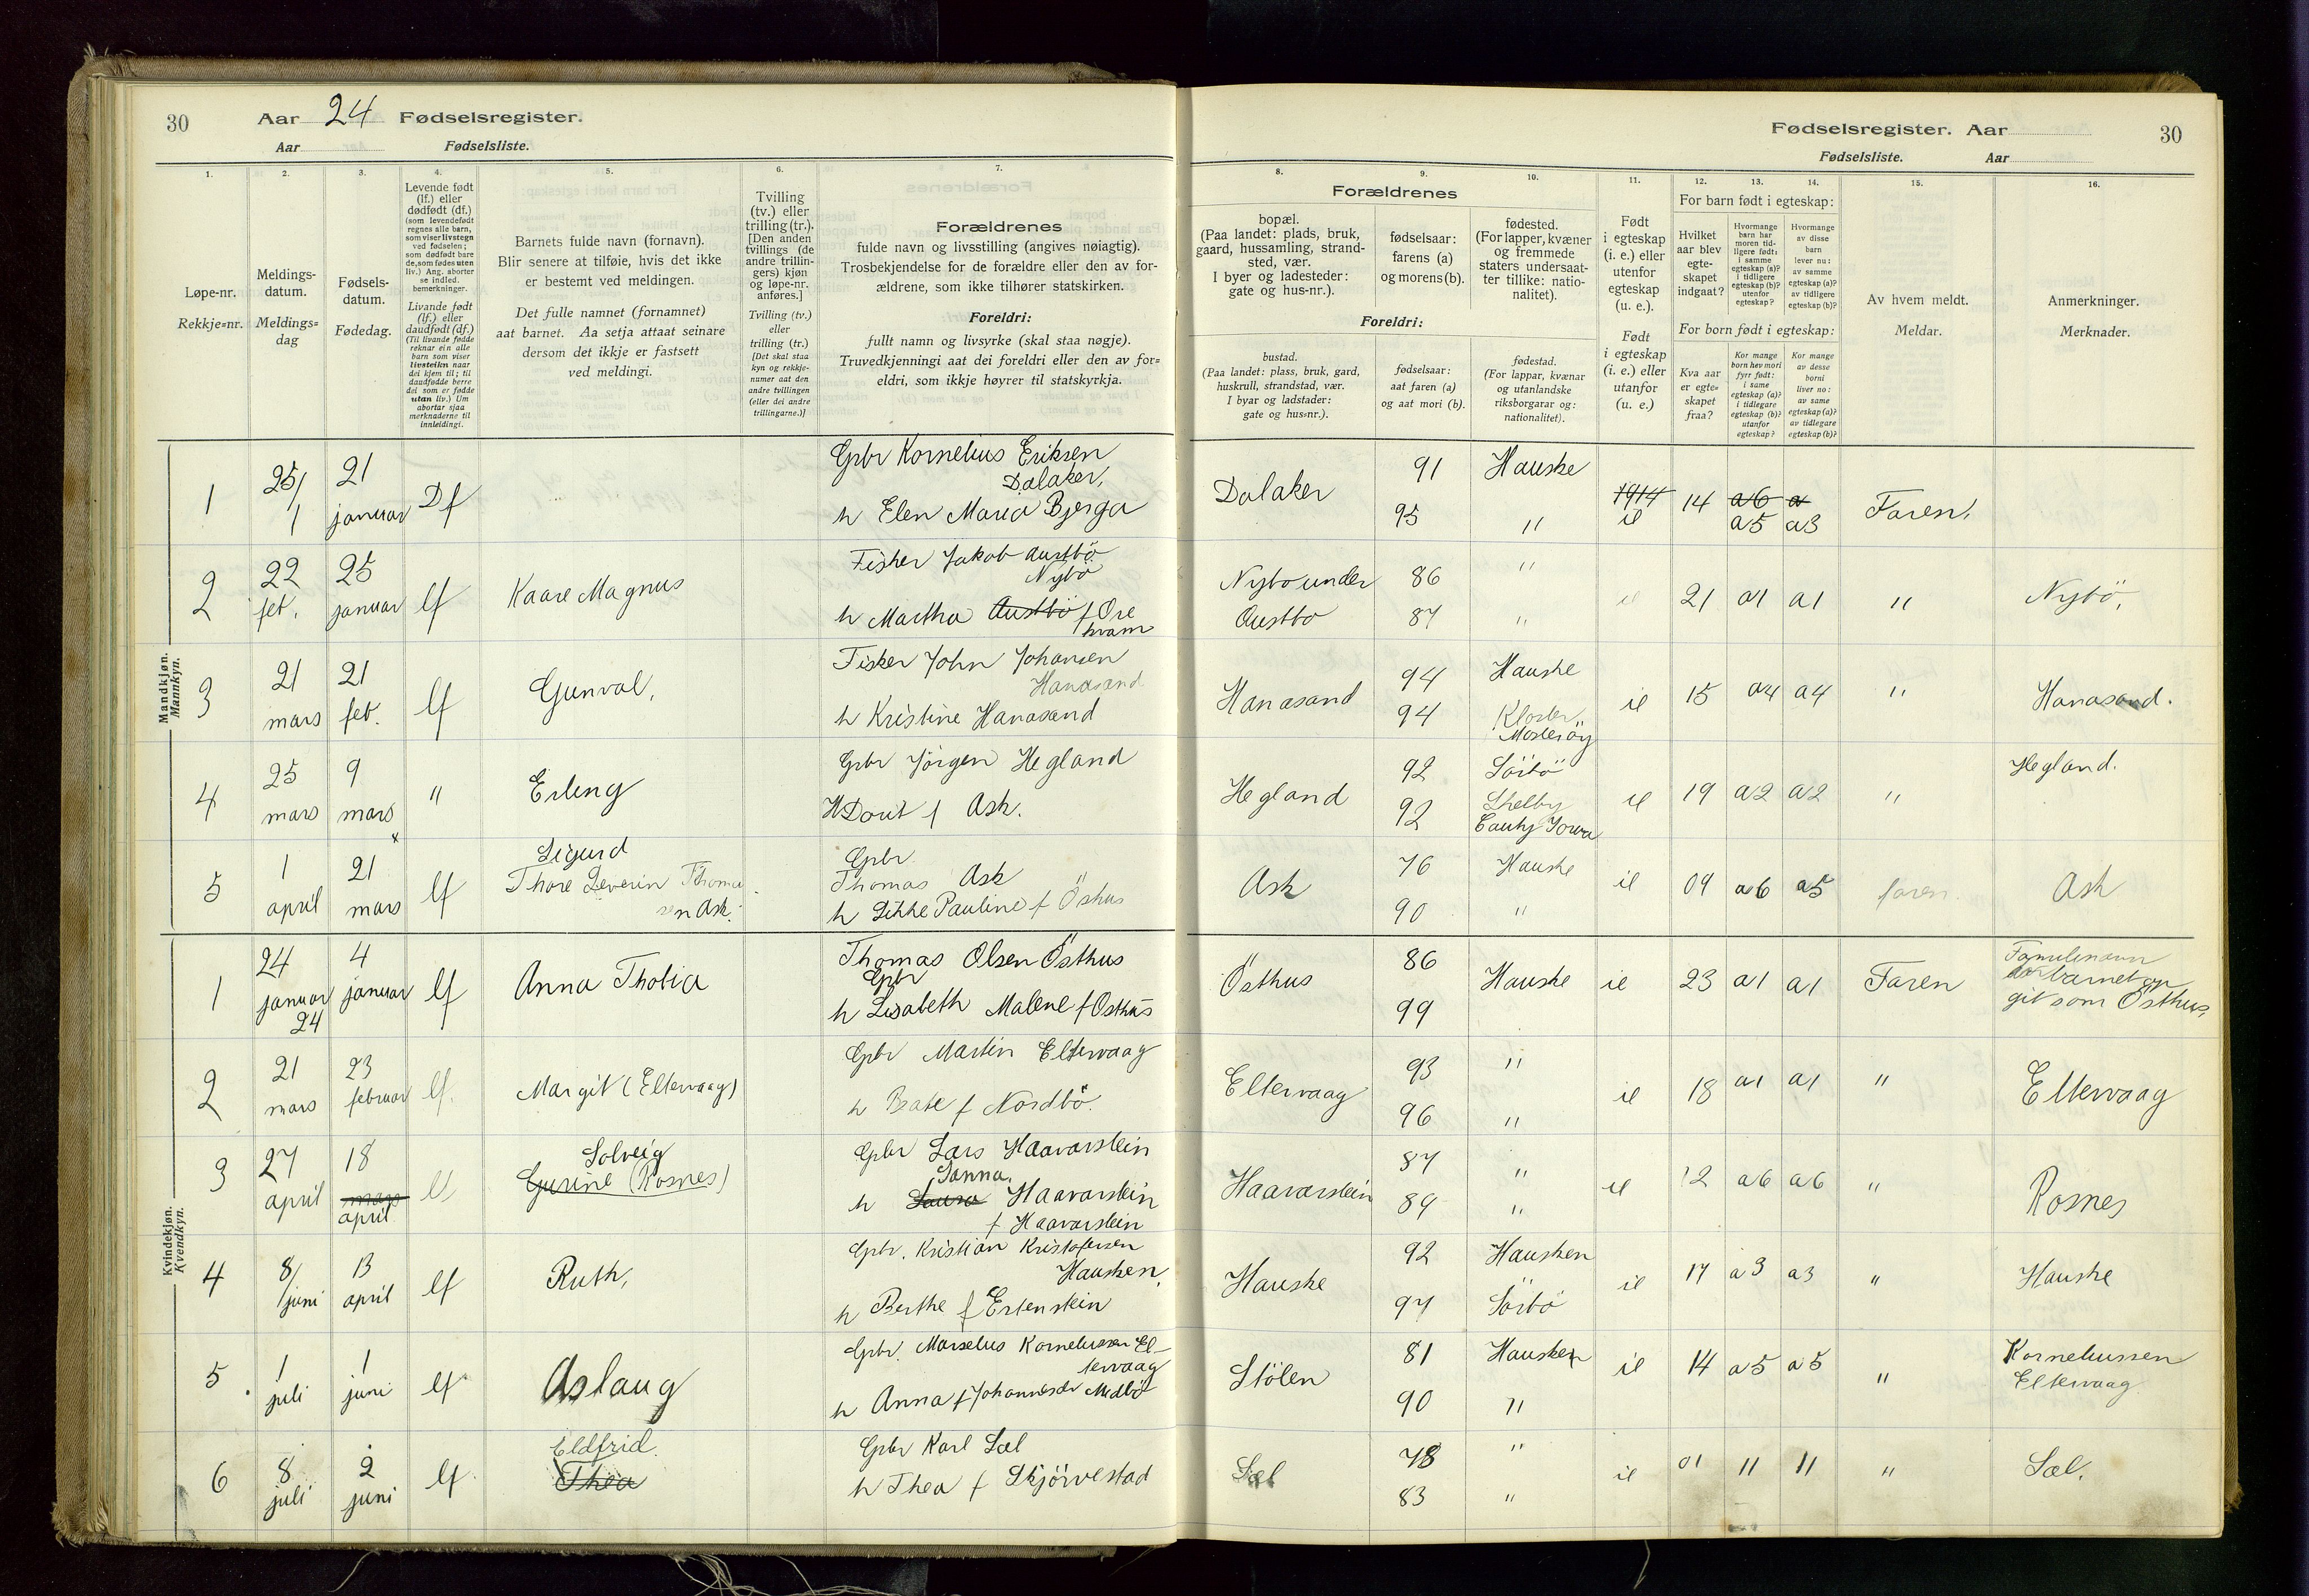 30
Aar 24 Fødselsregister.
Aar Fødselsliste.
Fødselsregister. Aar
30
Fødselsliste. Aar
1.
Løpe-nr.
Rekkje=nr.
2.
Meldings-
datum.
Meldings=
dag
3.
Fødsels-
datum.
Fødedag.
4.
Levende født
(lf.) eller
dødfødt (df.)
(som levendefødt
regnes alle barn,
som viser livstegn
ved fødselen;
som dødfødt bare
de, som fødes uten
liv.) Ang. aborter
se indled.
bemerkninger.
Livande født
(lf.) eller
daudfødt (df.)
(Til livande fødde
reknar ein alle
barn som viser
livsteikn naar
dei kjem til; til
daudfødde berre
dei som er fødde
utan liv.) Um
abortar sjaa
merknaderne til
innleidingi.
5.
Barnets fulde navn (fornavn).
Blir senere at tilføie, hvis det ikke
er bestemt ved meldingen.
Det fulle namnet (fornamnet)
aat barnet. Aa setja attaat seinare
dersom det ikkje er fastsett
ved meldingi.
6.
Tvilling
(tv.) eller
trilling (tr.).
[Den anden
tvillings (de
andre trillin-
gers) kjøn
og løpe-nr.
anføres.]
Tvilling (tv.)
eller
trilling (tr.)
[Det skal staa
kyn og rekkje-
numer aat den
andre tvillingen
(eller dei andre
trillingarne.)]
7.
Forældrenes
fulde navn og livsstilling (angives nøiagtig).
Trosbekjendelse for de forældre eller den av for-
ældrene, som ikke tilhører statskirken.
Foreldri:
fullt namn og livsyrke (skal staa nøgje).
Truvedkjenningi aat dei foreldri eller den av for=
eldri, som ikkje høyrer til statskyrkja.
8.
9.
10.
Forældrenes
bopæl.
(Paa landet: plads, bruk,
gaard, hussamling, strand-
sted, vær.
I byer og ladesteder:
gate og hus-nr.).
fødselsaar:
farens (a)
og morens (b).
fødested.
(For lapper, kvæner
og fremmede
staters undersaat-
ter tillike: natio-
nalitet).
Foreldri:
bustad.
(Paa landet: plass, bruk, gard,
huskrull, strandstad, vær.
I byar og ladstader:
gate og hus=nr.).
fødselsaar:
aat faren (a)
og aat mori (b).
fødestad.
(For lappar, kvænar
og utanlandske
riksborgarar og:
nationalitet).
11.
Født
i egteskap
(i. e.) eller
utenfor
egteskap
(u. e.).
Født
i egteskap
(i. e.) eller
utanfor
(u. e.)
12.
13.
14.
For barn født i egteskap:
Hvilket
aar blev
egte-
skapet
indgaat?
Hvormange
barn har
moren tid-
ligere født:
i samme
egteskap (a)?
i tidligere
egteskap (b)?
utenfor
egteskap?
Hvormange
av disse
barn
lever nu:
av samme
egteskap (a)?
av tidligere
egteskap (b)?
For born født i egteskap:
Kva aar
er egte=
skapet
fraa?
Kor mange
born hev mori
fyrr født:
i same
egteskap (a)?
i tidlegare
egteskap (b)?
utanfor
egteskap?
Kor mange
av desse
borni
liver no:
av same
egteskap (a)?
av tidlegare
egteskap (b)?
15.
Av hvem meldt.
Meldar.
16.
Anmerkninger.
Merknader.
Mandkjøn.
Mannkyn.
1 25/1 21 januar Df
Gbr Kornelius Eriksen
Dalaker,
h Elen Maria Bjerga
Dalaker 91 Hauske
95 "
1914 ie 14 a6 a
a5 a3 Faren,
2 22 feb. 25 januar lf Kaare Magnus
Fisker Jakob Austbö
Nybö
h Martha Austbö f Øre
kvam
Nybo under 86 "
Austbo 87 "
ie 21 a1 a1 " Nybö,
3 21 mars 21 feb. lf Gunval,
Fisker John Johansen
Hanasand
h Kristine Hanasand
Hanasand 94 Hauske
94 Kloster,
Mosteröy
ie 15 a4 a4 " Hanasand.
4 25 mars 9 mars " Erling
Gbr Jörgen Hegland
H Dorit f Ask.
Hegland 92 Sörbö
92 Shelby
County Iowa
ie 19 a2 a2 " Hegland.
5 1 april 21 mars lf
Sigurd
Thore Severin Thoma
sen Ask.
Gbr
Thomas Ask
h Sikke Pauline f Östhus
Ask 76 Hauske
90 "
ie 09 a6 a5 faren. Ask
Kvindekjøn.
Kvendkyn.
1 24 januar 24 4 januar lf Anna Thobia
Thomas Olsen Östhus
Gbr
h Lisabeth Malene f Östhus
Östhus 86 Hauske
99
ie 23 a1 a1 Faren
Familienavn
for barnet
git som Östhus,
2 21 mars 23 februar lf. Margit (Eltervaag)
Gbr Martin Eltervaag
h Beate f Nordbö.
Eltervaag 93 "
96 "
ie 18 a1 a1 " Eltervaag
3 27 april 18 mars april lf
Solveig
Gurine (Rosnes)
Gbr Lars Haavarstein
Janna,
h Laura Haavarstein
f Haavarstein
Haavarstein 87 "
89 "
ie 12 a6 a6 " Rosnes
4 8/juni 13 april lf Ruth,
Gbr. Kristian Kristofersen
Hausken,
h Berthe f Estenstein
Hauske 92 Hausken
97 Sörbö
ie 17 a3 a3 " Hauske
5 1 juli 1 juni lf Aslaug
Gbr. Marselius Korneliussen El-
tervaag
h Anna f Johannesdr Medbö
Stölen 81 Hausken
90 "
ie 14 a5 a5 " Korneliussen
Eltervaag
6 8 juli 2 juni lf
Eldfrid.
Thea
Gbr Karl Sæl
h Thea f Skjörvestad
Sæl 78 "
83 "
ie 01 11 11 " Sæl,